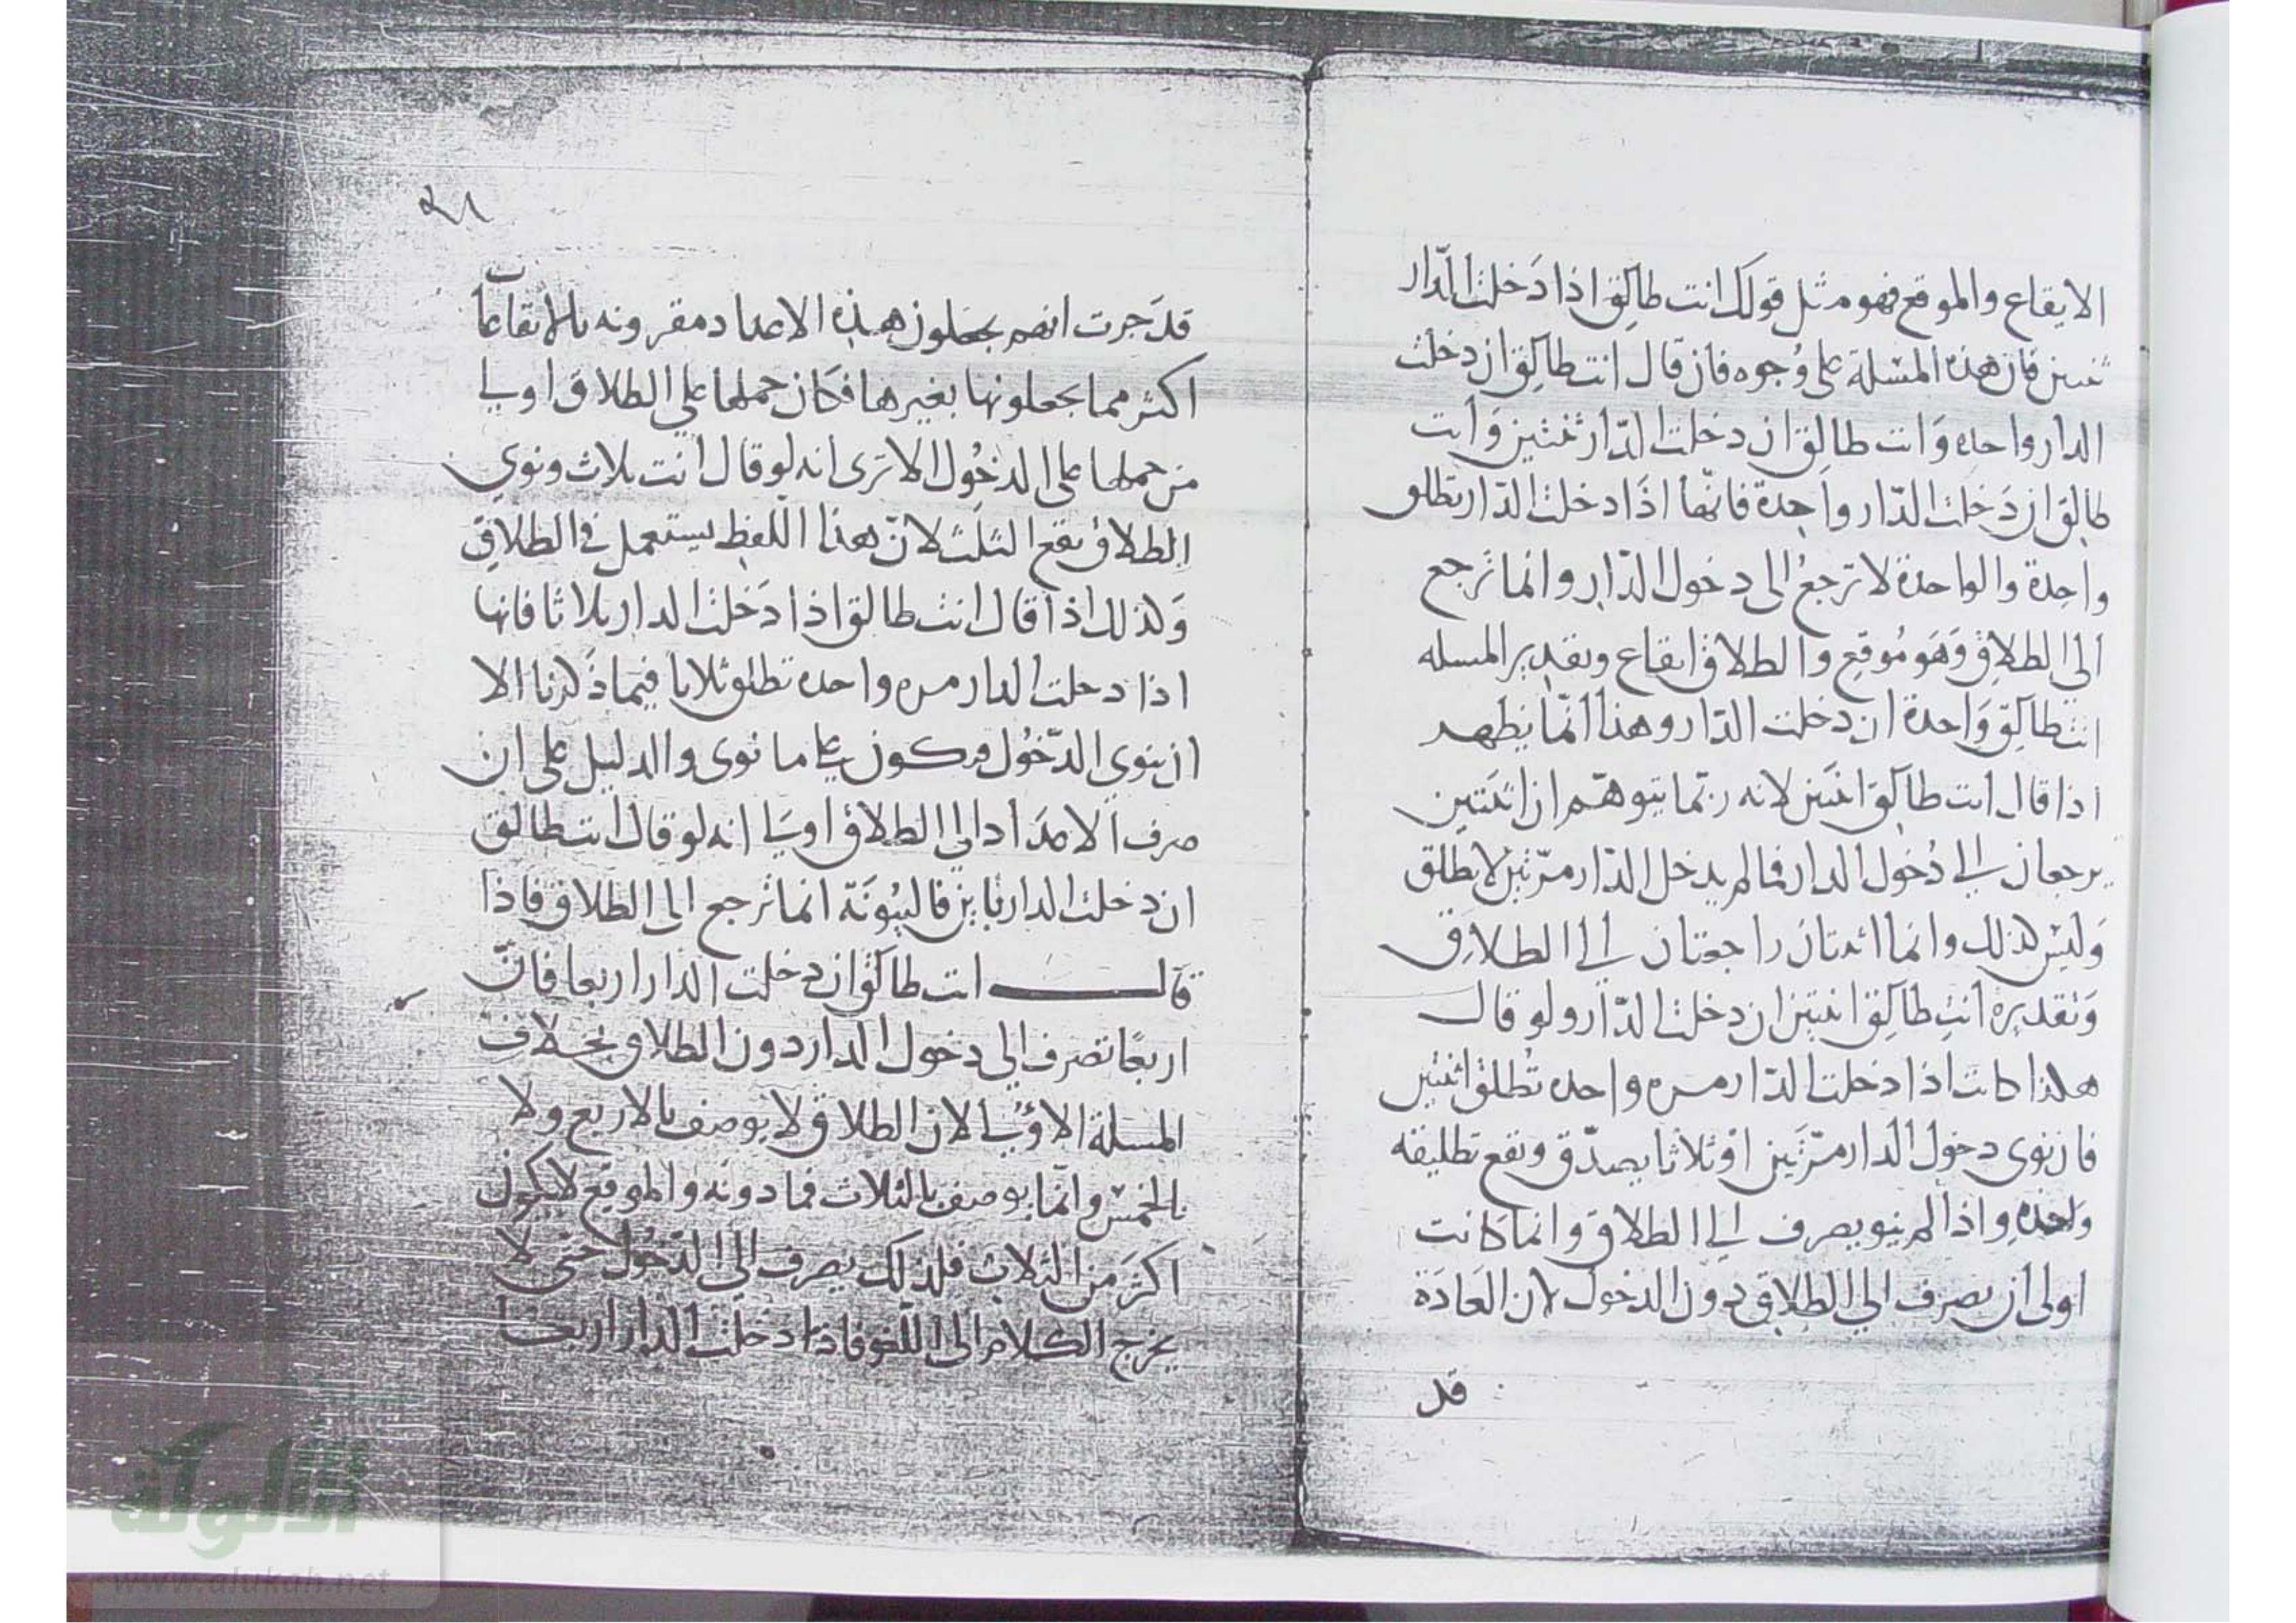 الايقاع والموقع فهو مثل قولك انت طالق اذا دَخلت الدّار
ثنتين فان هذه المسْئلة على وُجوه فان قال انت طالق ان دخلت
الدار واحده وَانت طالق ان دخلت الدّار ثنتين وَانت
طالق ان دَخلت الدّار واحِدة فانّها اذَا دخلت الدّار تطلق
واحِدة والواحدة لا ترجعُ الى دخول الدّار وانما ترجع
الى الطلاق وَهَو مُوقع والطلاق ايقاع وتقدير المسله
انت طالق وَاحدة ان دخلت الدّار وهذا انّما يظهر
اذا قال انت طالق اثنتين لانه ربّما يتوهّم ان اثنتين
يرجعان الى دُخول الدار فما لم يدخل الدّار مرّتين لا تطلق
وَليسْ كذلك وانما اثنتان راجعتان الى الطلاق
وَتقديره انتِ طالق اثنتين ان دخلت الدّار ولو قال
هكذا كانت اذا دخلت الدّار مره واحده تُطلق اثنتين
فان نوى دخول الدار مرّتَين اوْ ثلاثا يصدّق وتقع تطليقه
واحده واذا لم ينو يصرف الى الطلاق وانما كَانت
اولى ان يصرف الى الطلاق دون الدخول لان العَادَة
قد
قد جَرت انهم يجعلون هذه الاعداد مقرونه بالايقاعات
اكثر مما يجعلونها بغيرها فكَان حملها على الطلاق اولى
من حملها على الدخُول الا ترى انه لو قال انت بثلاث ونوى
الطلاق يقع الثلث لانّ هذا اللفظ يستعمل في الطلاق
وَكذلك اذا قال انت طالق اذا دَخلت الدار ثلاثا فانها
اذا دخلت الدار مره واحده تطلق ثلاثا فيما ذَكرنا الا
ان ينوى الدّخُول فيكون على ما نوى والدليل على ان
صرف الاعدَاد الى الطلاق اولى انه لو قال انت طالق
ان دخلت الدار باين فالبينُونَة انما ترجع الى الطلاق فاذا
قال انت طالق ان دخلت الدار اربعا فانّ
اربعًا تصرف الى دخول الدار دون الطلاق بخلاف
المسئلة الاوْلى لان الطلاق لا يوصف بالاربع ولا
بالخمسْ وانّما يوصف بالثلاث فما دونَه والموقع لا يكون
اكثرَ من الثلاث فلذلك يصرف الى الدّخُول حتى لا
يخرج الكلام الى اللّغو فاذا دخلت الدار اربعا
الألوكة
www.alukah.net